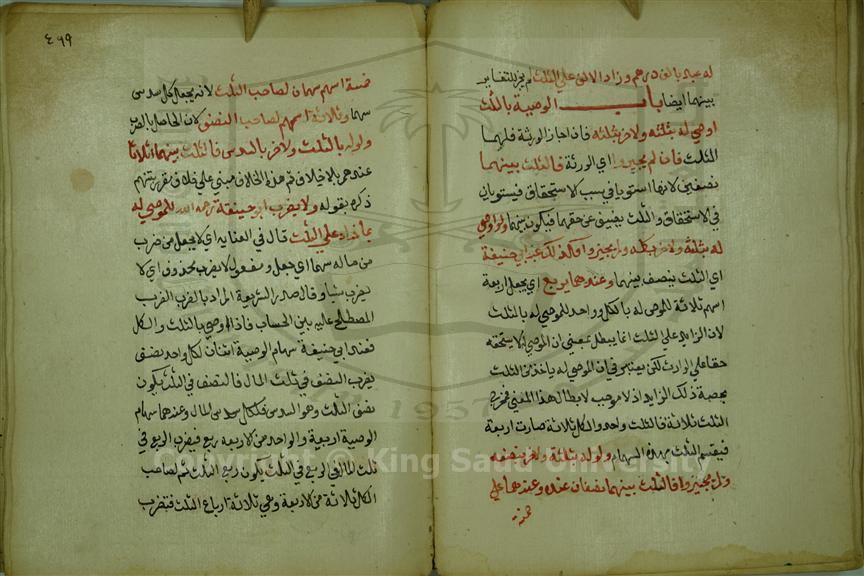 له عبد بالف درهم وزاد الالف علي الثلث لم يجز للتغاير
بينهما ايضا باب الوصية بالثلث
اوصي له بثلثه ولاخر بثلثه فان اجاز الورثة فلهما
الثلث فان لم يجيزوا اي الورثة فالثلث بينهما
نصفين لانهما استويا في سبب الاستحقاق فيستويان
في الاستحقاق والثلث يضيق عن حقهما فيكون بينهما ولو اوصي
له بثلثه ولاخر بكله ولم يجيزوا فكذلك عند ابي حنيفة
اي الثلث ينصف بينهما وعندهما يربع اي يجعل اربعة
اسهم ثلاثة للموصي له بالكل وواحد للموصي له بالثلث
لان الزايد علي الثلث انما يبطل بمعني ان الموصي له لا يستحقه
حقا علي الوارث لكن يعتبر في ان الموصي له ياخذ من الثلث
بحصة ذلك الزايد اذ لا موجب لابطال هذا المعني فمخرج
الثلث ثلاثة فالثلث واحد والكل ثلاثة صارت اربعة
فيقسم الثلث بهذه السهام ولو له بثلثه ولاخر بنصفه
ولم يجيزوا فالثلث بينهما نصفان عنده وعندهما علي
خمسة
٤٦٩
خمسة اسهم سهمان لصاحب الثلث لانه يجعل كل سدس
سهما وثلاثة اسهم لصاحب النصف لان الحاصل بالضرب
ولو له بالثلث ولاخر بالسدس فالثلث بينهما اثلاثا
عندهم بلا خلاف ثم هذا الخلاف مبني علي خلاف مقرر بينهم
ذكره بقوله ولا يضرب ابو حنيفة رحمه الله للموصي له
بما زاد علي الثلث قال في العناية اي لا يجعل من ضرب
من ماله سهما اي جعل ومفعول لا يضرب محذوف اي لا
يضرب شيا وقال صدر الشريعة المراد بالضرب الضرب
المصطلح عليه بين الحساب فاذا اوصي بالثلث والكل
فعند ابي حنيفة سهام الوصية اثنان لكل واحد نصف
يضرب النصف في ثلث المال فالنصف في الثلث يكون
نصف الثلث وهو السدس فلكل سدس المال وعندهما سهام
الوصية اربعة والواحد من الاربعة ربع فيضرب الربع في
ثلث المال فالربع في الثلث يكون ربع الثلث ثم لصاحب
الكل ثلاثة من الاربعة وهي ثلاثة ارباع الثلث فتضرب
Copyright © King Saud University
1957